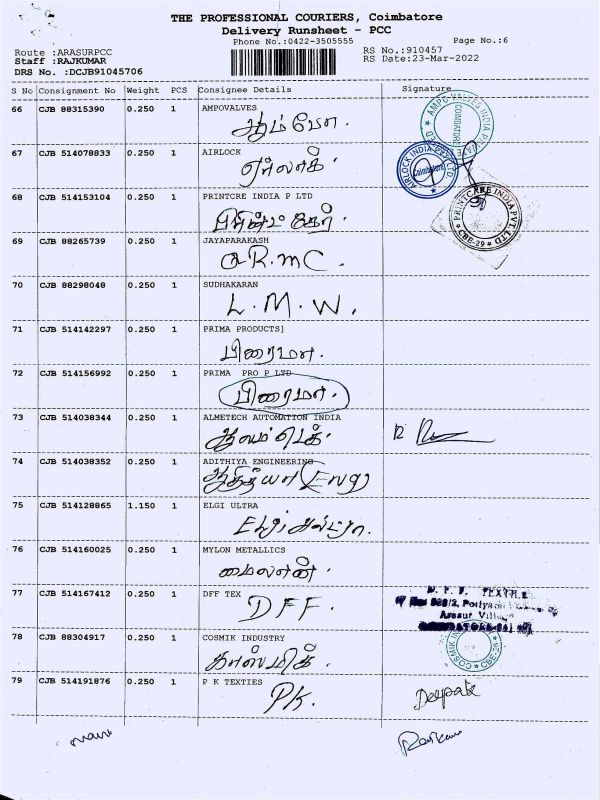 THE PROFESSIONAL COURIERS, Coimbatore
Delivery Runsheet - PCC
Phone No.:0422-3505555 Page No.:6
Route :ARASURPCC RS No.:910457
Staff :RAJKUMAR RS Date:23-Mar-2022
DRS No. :DCJB91045706
S No Consignment No Weight PCS Consignee Details Signature
66 CJB 88315390 0.250 1 AMPOVALVES
ஆம்போ.
AMPO VALVES INDIA COIMBATORE
67 CJB 514078833 0.250 1 AIRLOCK
ஏர்லாக்
AIRLOCK INDIA PVT LTD Coimbatore
68 CJB 514153104 0.250 1 PRINTCRE INDIA P LTD
பிரிண்ட் கேர்.
PRINTCARE INDIA PVT. LTD CBE-29
69 CJB 88265739 0.250 1 JAYAPARAKASH
a.R.m.C.
70 CJB 88298048 0.250 1 SUDHAKARAN
L.M.W.
71 CJB 514142297 0.250 1 PRIMA PRODUCTS]
பிரைமா.
72 CJB 514156992 0.250 1 PRIMA PRO P LTD
பிரைமா.
73 CJB 514038344 0.250 1 ALMETECH AUTOMATION INDIA
74 CJB 514038352 0.250 1 ADITHIYA ENGINEERING
ஆதித்யா Engg
75 CJB 514128865 1.150 1 ELGI ULTRA
Elgi அல்ட்ரா.
76 CJB 514160025 0.250 1 MYLON METALLICS
மைலான்.
77 CJB 514167412 0.250 1 DFF TEX
DFF.
D. F. F. TEXTILE
Arasur Village
78 CJB 88304917 0.250 1 COSMIK INDUSTRY
காஸ்மிக்.
COSMIK CBE
79 CJB 514191876 0.250 1 P K TEXTIES
PK.
Deepak